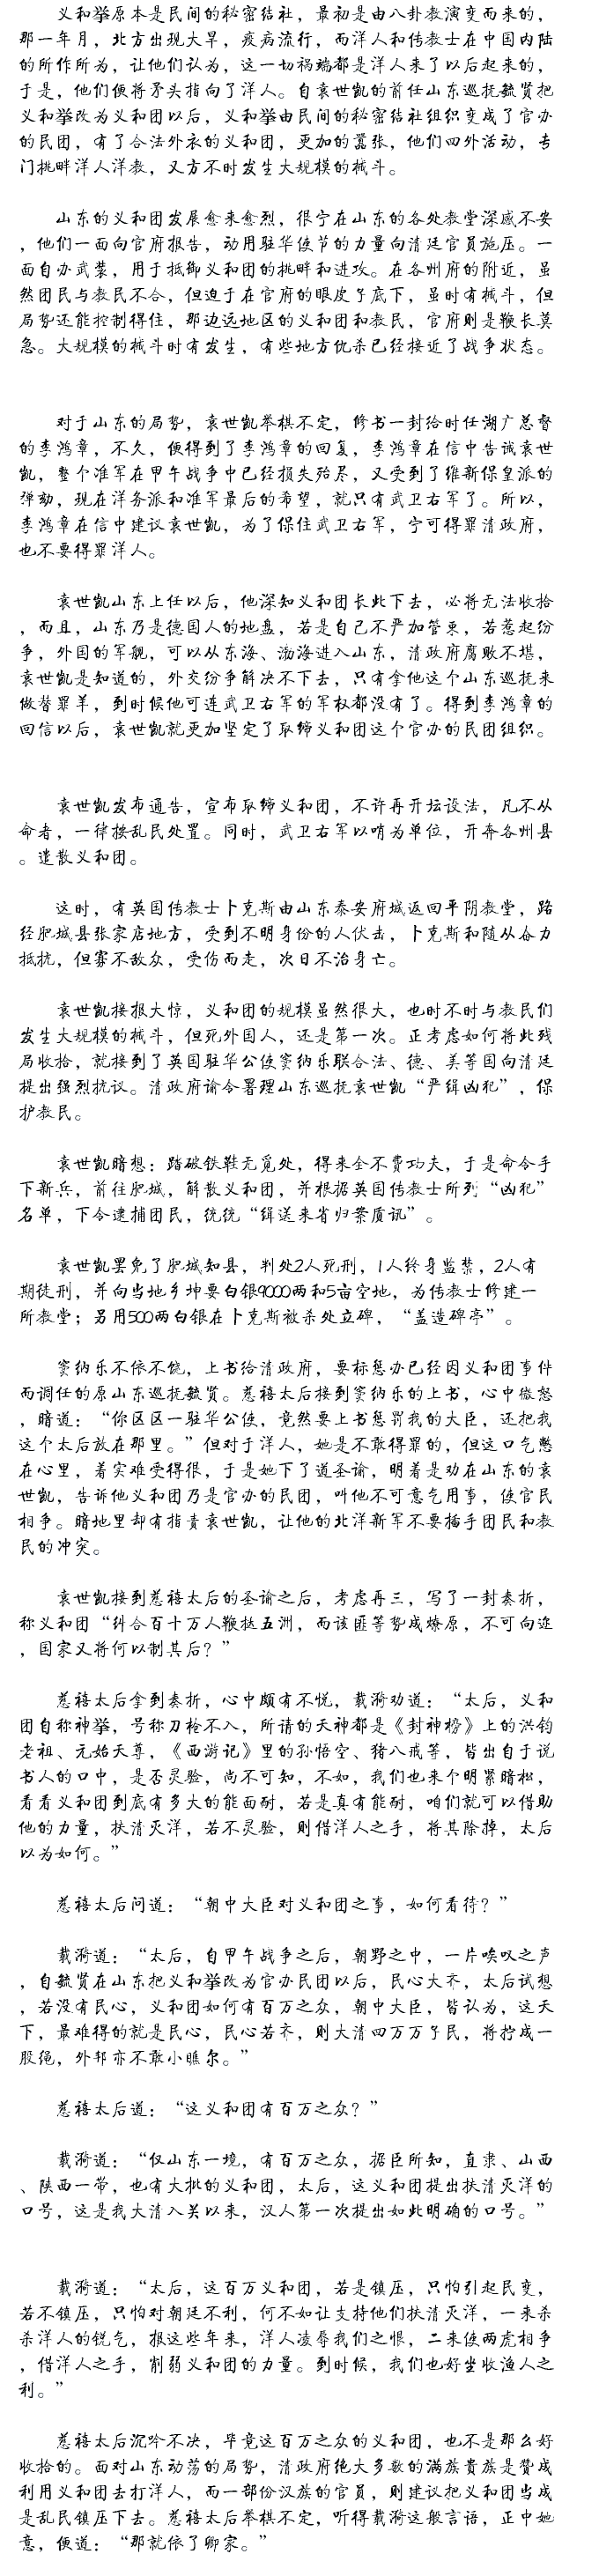 义和拳原本是民间的秘密结社，最初是由八卦教演变而来的，
那一年月，北方出现大旱，疫病流行，而洋人和传教士在中国内陆
的所作所为，让他们认为，这一切祸端都是洋人来了以后起来的，
于是，他们便将矛头指向了洋人。自袁世凯的前任山东巡抚毓贤把
义和拳改为义和团以后，义和拳由民间的秘密结社组织变成了官办
的民团，有了合法外衣的义和团，更加的嚣张，他们四外活动，专
门挑衅洋人洋教，又方不时发生大规模的械斗。
山东的义和团发展愈来愈烈，很宁在山东的各处教堂深感不安
，他们一面向官府报告，动用驻华使节的力量向清廷官员施压。一
面自办武装，用于抵御义和团的挑衅和进攻。在各州府的附近，虽
然团民与教民不合，但迫于在官府的眼皮子底下，虽时有械斗，但
局势还能控制得住，那边远地区的义和团和教民，官府则是鞭长莫
急。大规模的械斗时有发生，有些地方仇杀已经接近了战争状态。
对于山东的局势，袁世凯举棋不定，修书一封给时任湖广总督
的李鸿章，不久，便得到了李鸿章的回复，李鸿章在信中告诫袁世
凯，整个淮军在甲午战争中已经损失殆尽，又受到了维新保皇派的
弹劾，现在洋务派和淮军最后的希望，就只有武卫右军了。所以，
李鸿章在信中建议袁世凯，为了保住武卫右军，宁可得罪清政府，
也不要得罪洋人。
袁世凯山东上任以后，他深知义和团长此下去，必将无法收拾
，而且，山东乃是德国人的地盘，若是自己不严加管束，若惹起纷
争，外国的军舰，可以从东海、渤海进入山东，清政府腐败不堪，
袁世凯是知道的，外交纷争解决不下去，只有拿他这个山东巡抚来
做替罪羊，到时候他可连武卫右军的军权都没有了。得到李鸿章的
回信以后，袁世凯就更加坚定了取缔义和团这个官办的民团组织。
袁世凯发布通告，宣布取缔义和团，不许再开坛设法，凡不从
命者，一律按乱民处置。同时，武卫右军以哨为单位，开奔各州县
。遣散义和团。
这时，有英国传教士卜克斯由山东泰安府城返回平阴教堂，路
经肥城县张家店地方，受到不明身份的人伏击，卜克斯和随从奋力
抵抗，但寡不敌众，受伤而走，次日不治身亡。
袁世凯接报大惊，义和团的规模虽然很大，也时不时与教民们
发生大规模的械斗，但死外国人，还是第一次。正考虑如何将此残
局收拾，就接到了英国驻华公使窦纳乐联合法、德、美等国向清廷
提出强烈抗议。清政府谕令署理山东巡抚袁世凯“严缉凶犯”，保
护教民。
袁世凯暗想：踏破铁鞋无觅处，得来全不费功夫，于是命令手
下新兵，前往肥城，解散义和团，并根据英国传教士所列“凶犯”
名单，下令逮捕团民，统统“缉送来省归案质讯”。
袁世凯罢免了肥城知县，判处2人死刑，1人终身监禁，2人有
期徒刑，并向当地乡坤要白银9000两和5亩空地，为传教士修建一
所教堂；另用500两白银在卜克斯被杀处立碑，“盖造碑亭”。
窦纳乐不依不饶，上书给清政府，要标惩办已经因义和团事件
而调任的原山东巡抚毓贤。慈禧太后接到窦纳乐的上书，心中微怒
，暗道：“你区区一驻华公使，竟然要上书惩罚我的大臣，还把我
这个太后放在那里。”但对于洋人，她是不敢得罪的，但这口气憋
在心里，着实难受得很，于是她下了道圣谕，明着是劝在山东的袁
世凯，告诉他义和团乃是官办的民团，叫他不可意气用事，使官民
相争。暗地里却有指责袁世凯，让他的北洋新军不要插手团民和教
民的冲突。
袁世凯接到慈禧太后的圣谕之后，考虑再三，写了一封奏折，
称义和团“纠合百十万人鞭挞五洲，而该匪等势成燎原，不可向迩
，国家又将何以制其后？”
慈禧太后拿到奏折，心中颇有不悦，载漪劝道：“太后，义和
团自称神拳，号称刀枪不入，所请的天神都是《封神榜》上的洪钧
老祖、元始天尊，《西游记》里的孙悟空、猪八戒等，皆出自于说
书人的口中，是否灵验，尚不可知，不如，我们也来个明紧暗松，
看看义和团到底有多大的能面耐，若是真有能耐，咱们就可以借助
他的力量，扶清灭洋，若不灵验，则借洋人之手，将其除掉，太后
以为如何。”
慈禧太后问道：“朝中大臣对义和团之事，如何看待？”
载漪道：“太后，自甲午战争之后，朝野之中，一片唉叹之声
，自毓贤在山东把义和拳改为官办民团以后，民心大齐，太后试想
，若没有民心，义和团如何有百万之众，朝中大臣，皆认为，这天
下，最难得的就是民心，民心若齐，则大清四万万子民，将拧成一
股绳，外邦亦不敢小瞧尔。”
慈禧太后道：“这义和团有百万之众？”
载漪道：“仅山东一境，有百万之众，据臣所知，直隶、山西
、陕西一带，也有大批的义和团，太后，这义和团提出扶清灭洋的
口号，这是我大清入关以来，汉人第一次提出如此明确的口号。”
载漪道：“太后，这百万义和团，若是镇压，只怕引起民变，
若不镇压，只怕对朝廷不利，何不如让支持他们扶清灭洋，一来杀
杀洋人的锐气，报这些年来，洋人凌辱我们之恨，二来使两虎相争
，借洋人之手，削弱义和团的力量。到时候，我们也好坐收渔人之
利。”
慈禧太后沉吟不决，毕竟这百万之众的义和团，也不是那么好
收拾的。面对山东动荡的局势，清政府绝大多数的满族贵族是赞成
利用义和团去打洋人，而一部份汉族的官员，则建议把义和团当成
是乱民镇压下去。慈禧太后举棋不定，听得载漪这般言语，正中她
意，便道：“那就依了卿家。”